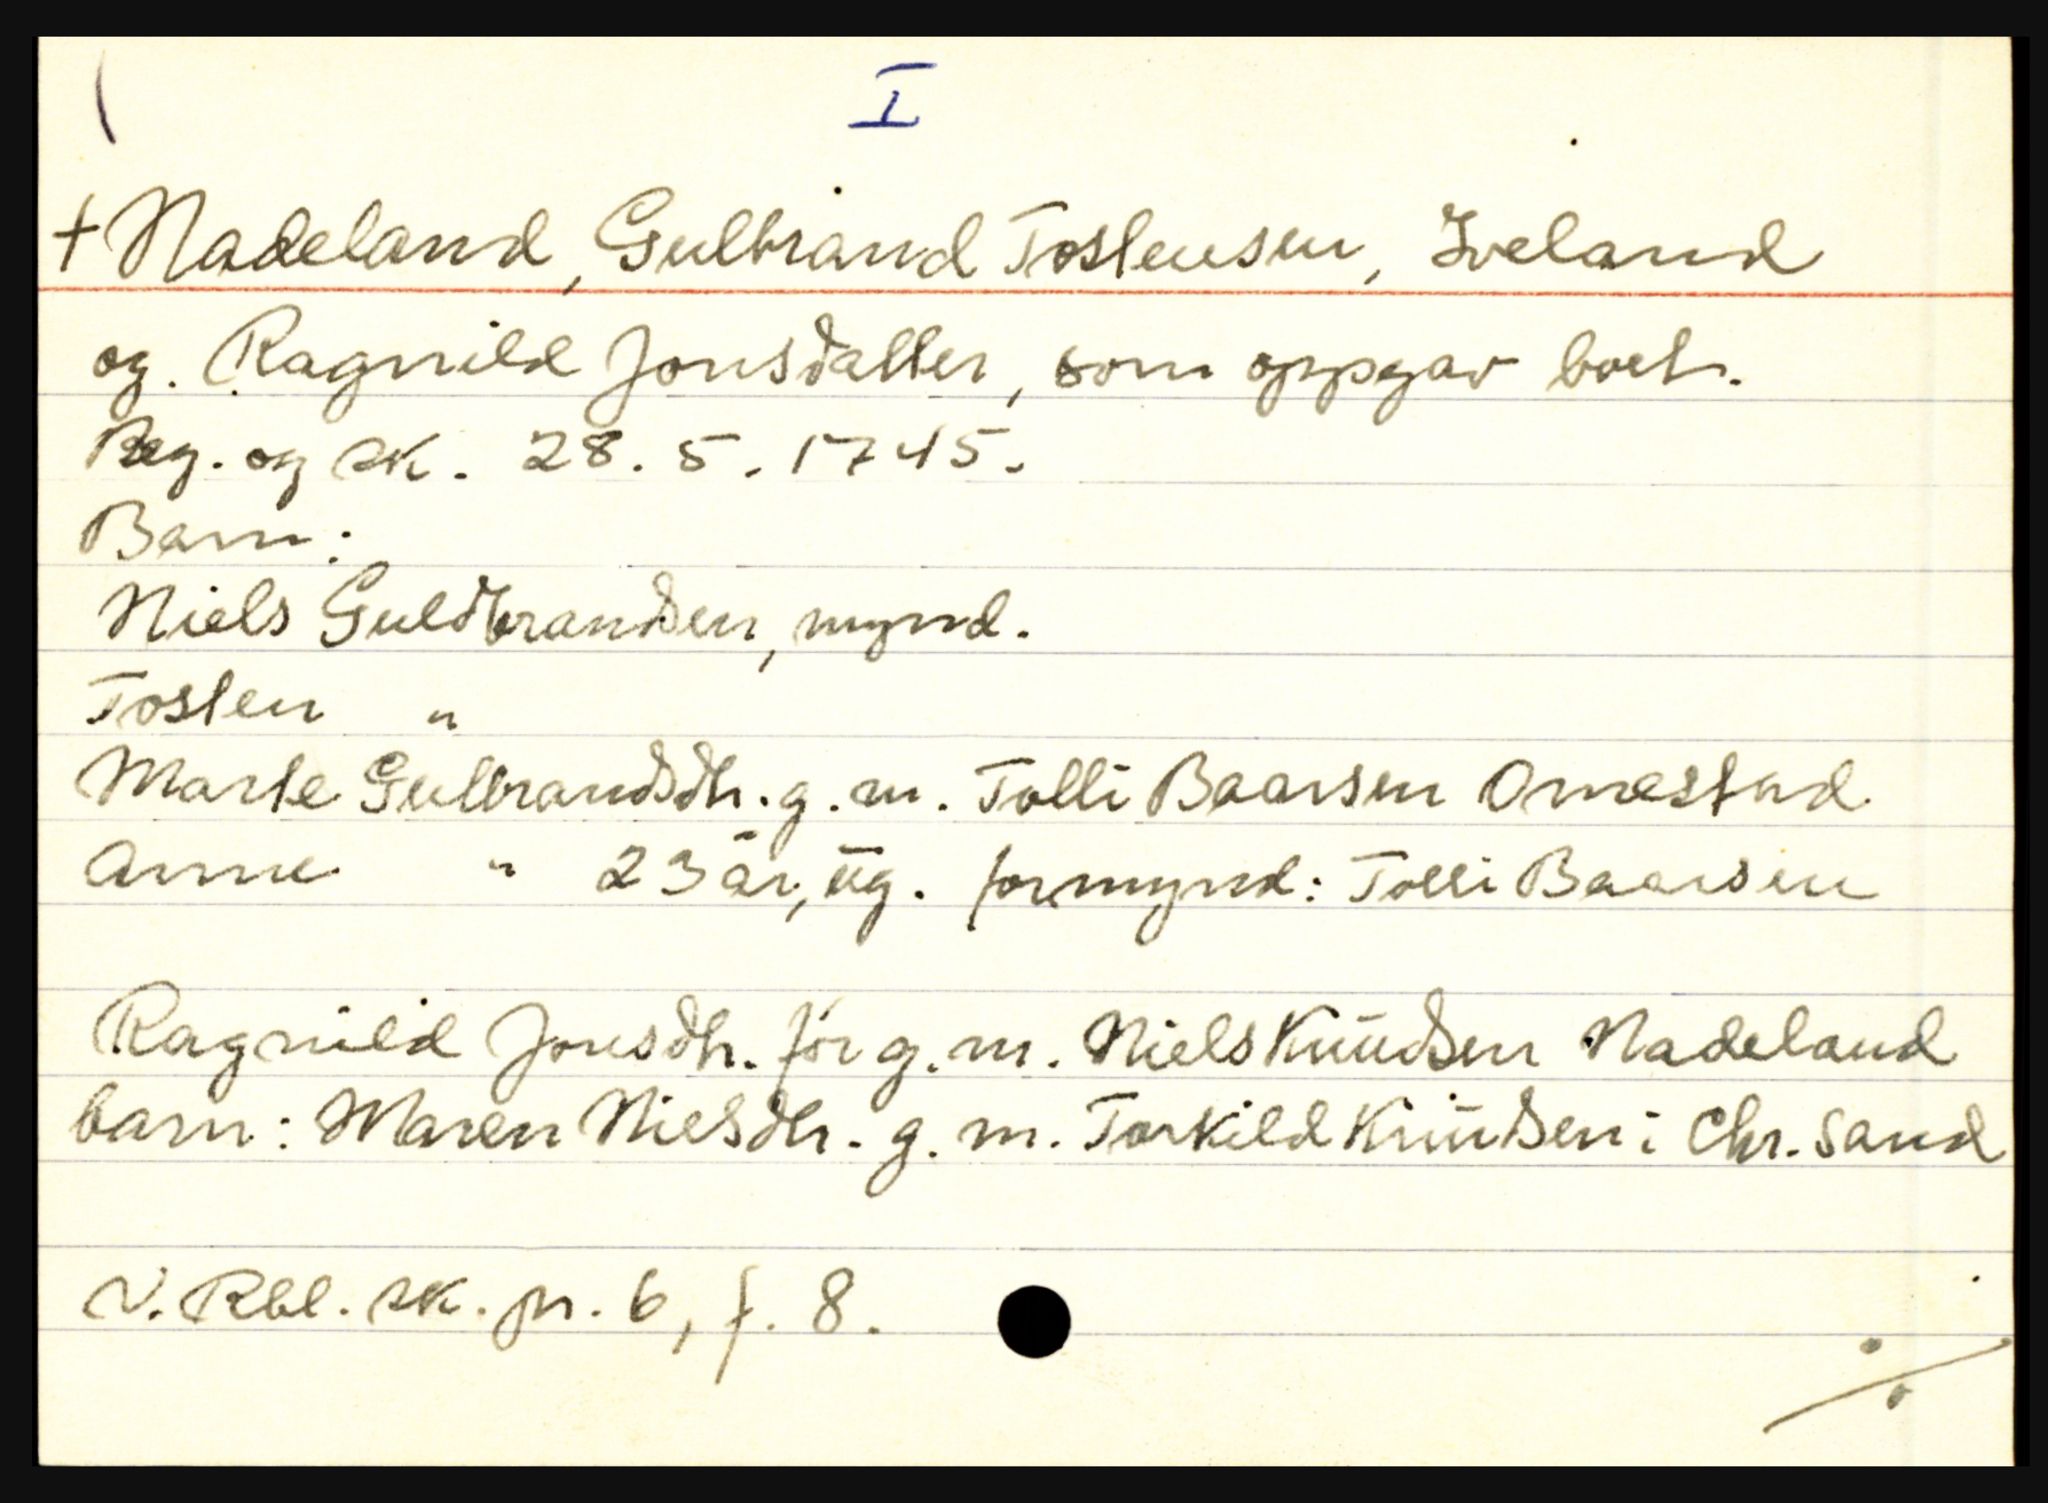 I
+ Nadeland, Gulbrand Tostensen, Iveland
og Ragnild Jonsdatter, som oppgav boet.
Reg. og sk. 28.5.1745.
Barn:
Niels Guldbrandsen, mynd.
Tosten "
Marte Gulbrandsdtr. g.m. Tolli Baarsen Omestad
Anne " 23 år, ug. formynd: Tolli Baarsen
Ragnild Jonsdtr. før g.m. Niels Knudsen Nadeland
barn: Maren Nielsdtr. g.m. Torkild Knudsen i Chr. sand
V. Rbl. sk. pr. 6, f. 8.
./.